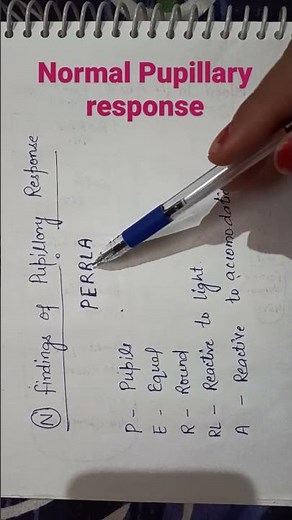 Normal Pupillary
response
(N) findings of Pupillory Response
PERRLA
P - Pupils
E - Equal
R - Round
RL - Reactive to light
A - Reactive to accomodati